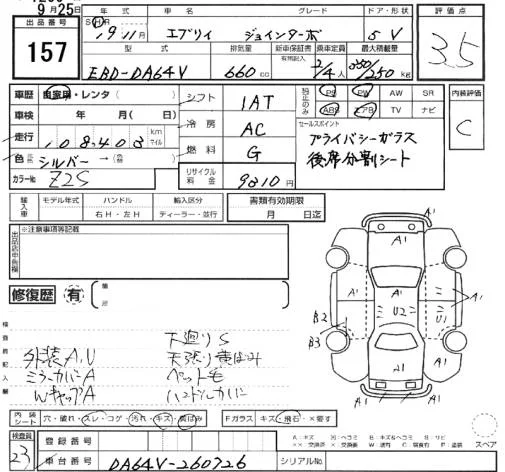 9月25日
出品番号 157
年式 車名 グレード ドア・形状 評価点
19年11月 エブリィ ジョインターボ 5 V 3.5
型式 排気量 新車保証書 乗車定員 最大積載量
有・無記入
EBD-DA64V 660cc 2/4人 350/250kg
車歴 自家用・レンタ( )
シフト 1AT
純正のみ PS PW AW SR
ABS エアB TV ナビ
内装評価 C
車検 年 月( 日)
冷房 AC
セールスポイント
プライバシーガラス
後席分割シート
走行 108403 km マイル
燃料 G
色 シルバー → (色 )
カラーNo. Z2S
リサイクル料金 9810円
輸入車 モデル年式 ハンドル 右H・左H 輸入区分 ディーラー・並行
書類有効期限 月 日迄
※注意事項等記載
修復歴 有
検査員記入欄
下廻りS
外装A,U 天張り黄ばみ
ミラーカバーA ペット毛
WキャップA
A1
A1
A1 A1 A1
B2 U2 U1
B3
A1
A1
内装シート 穴・破れ・スレ・コゲ・汚れ・キズ・黄ばみ
Fガラス キズ・飛石・×要す
スペア
検査員 23
登録番号
車台番号 DA64V-260726 シリアルNo.